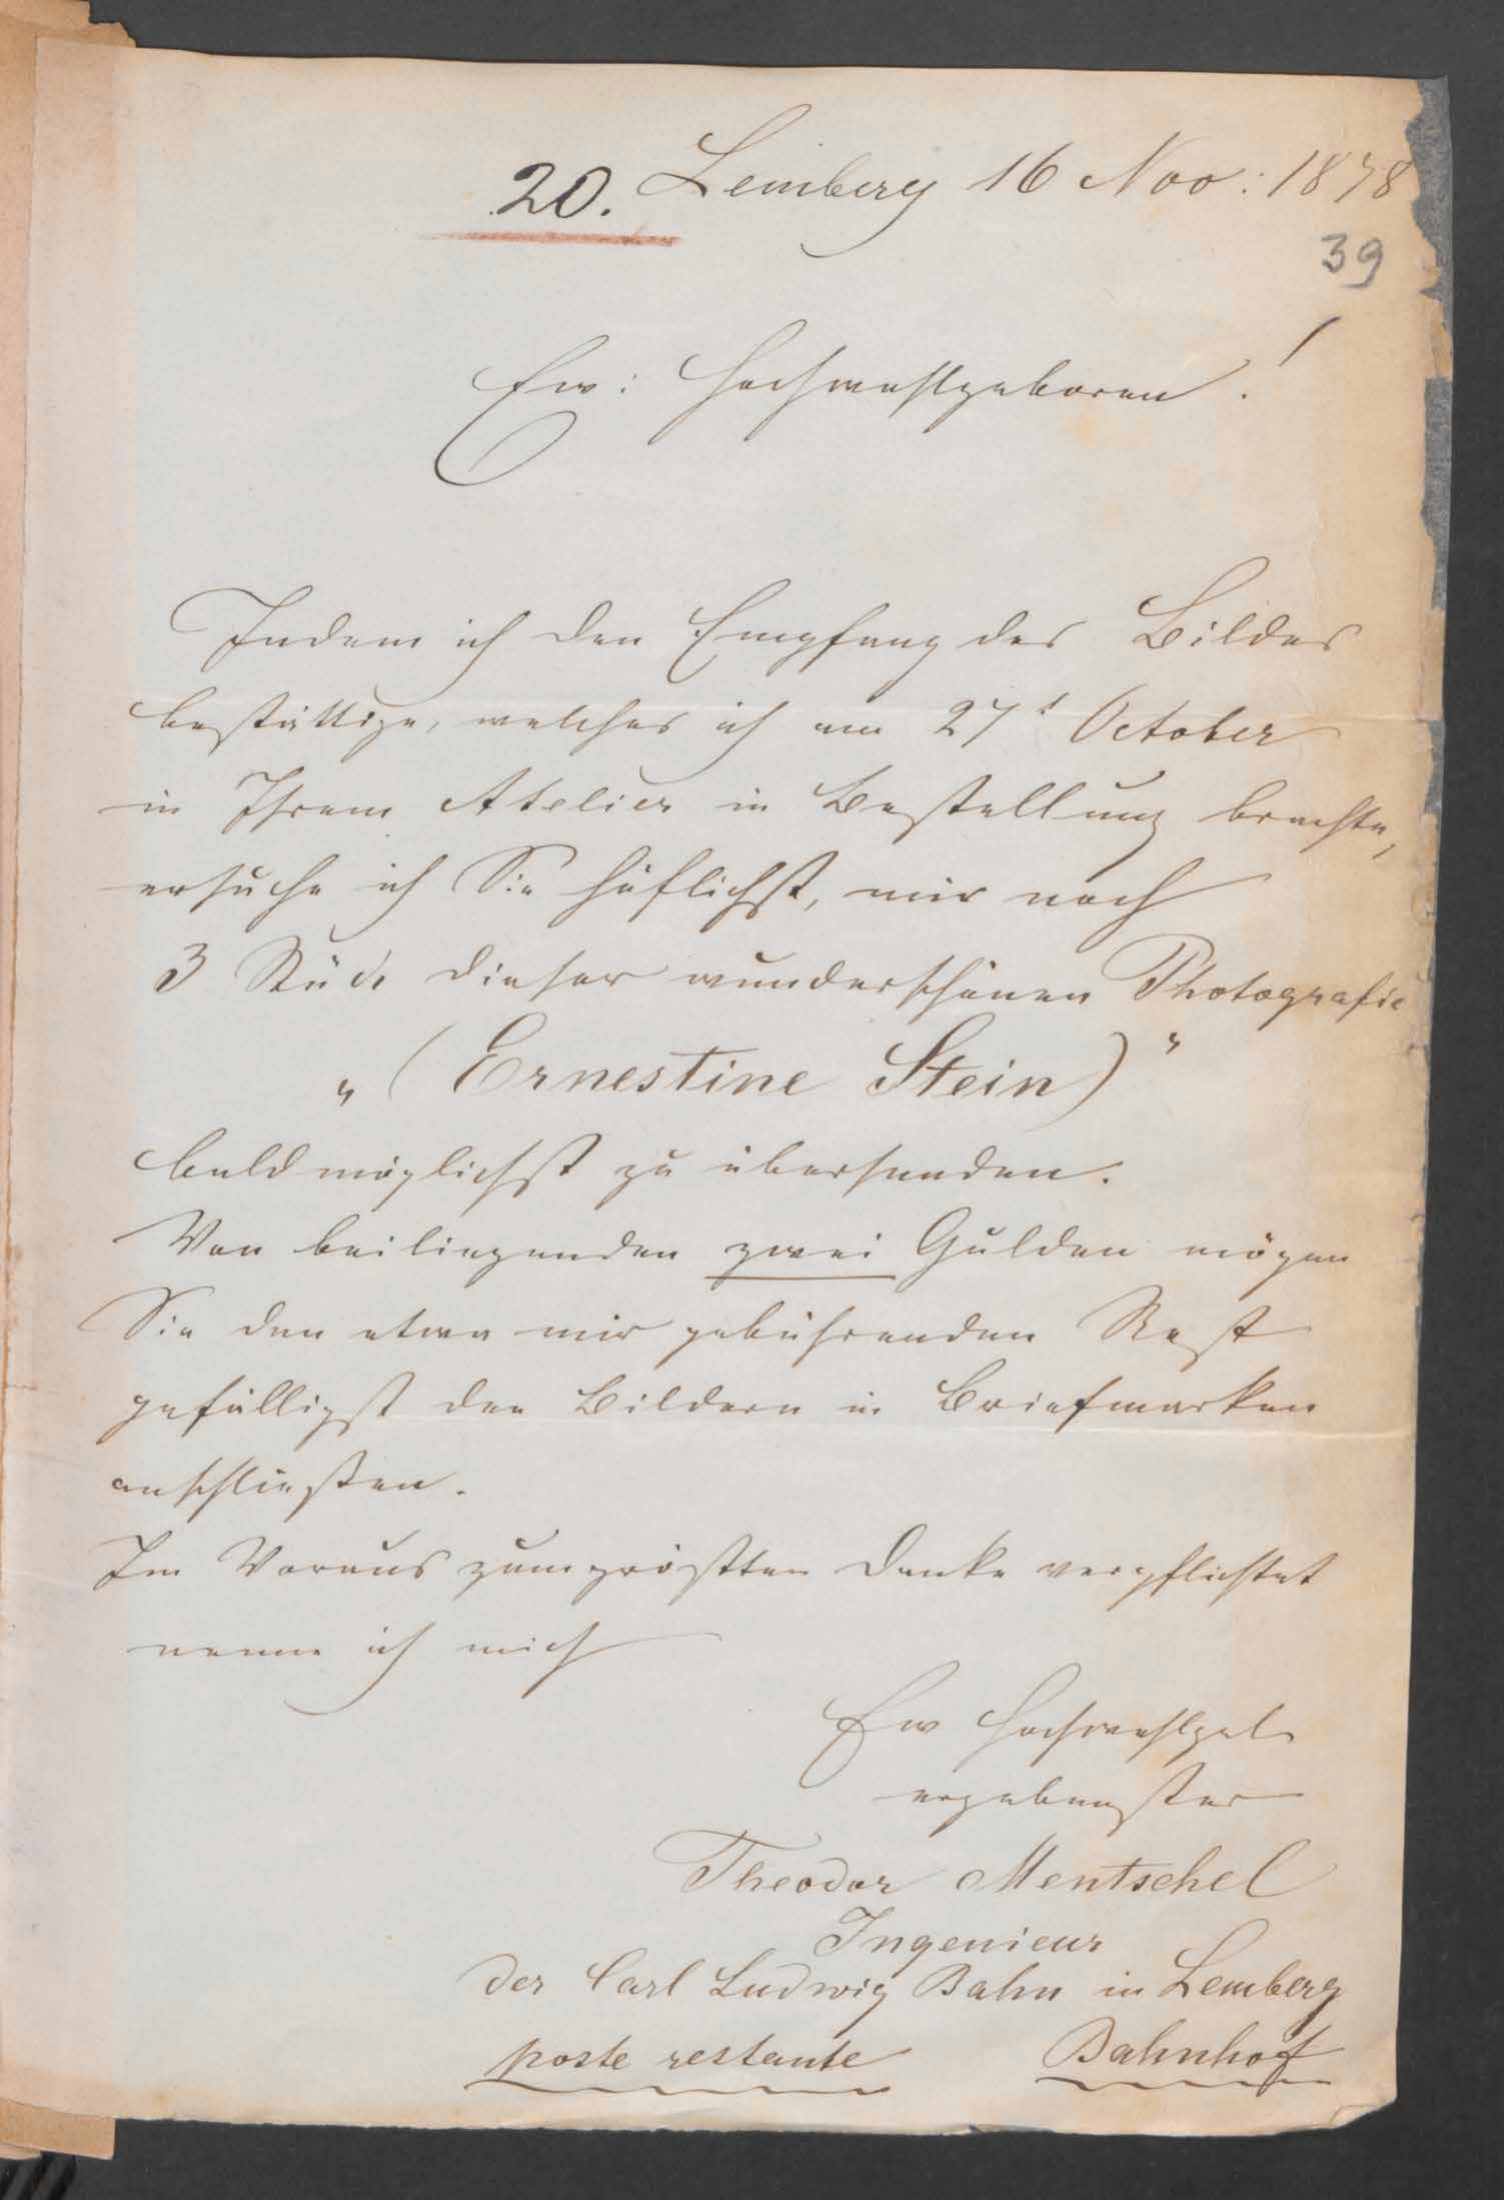 20. Lemberg 16 Nov: 1878
39
Ew: Hochwohlgeboren!
Indem ich den Empfang des Bildes
bestättige, welches ich am 27t October
in Ihrem Atelier in Bestellung brachte,
ersuche ich Sie höflichst, mir noch
3 Stück dieser wunderschönen Photografie
„(Ernestine Stein)"
baldmöglichst zu übersenden.
Von beiliegenden zwei Gulden mögen
Sie den etwa mir gebührenden Rest
gefälligst den Bildern in Briefmarken
anschließen.
Im Voraus zum größten Danke verpflichtet
nenne ich mich
Ew Hochwohlgeb
ergebenster
Theodor Mentschel
Ingenieur
der Carl Ludwig Bahn in Lemberg
poste restante Bahnhof